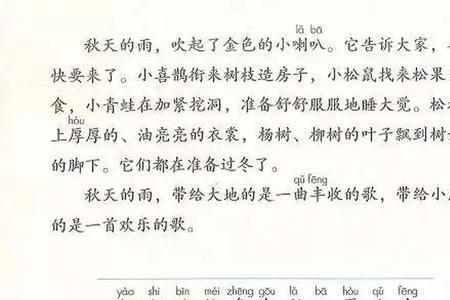 lǎ bā
秋天的雨，吹起了金色的小喇叭。它告诉大家，
快要来了。小喜鹊衔来树枝造房子，小松鼠找来松果
食，小青蛙在加紧挖洞，准备舒舒服服地睡大觉。松
hòu
上厚厚的、油亮亮的衣裳，杨树、柳树的叶子飘到树
的脚下。它们都在准备过冬了。
qǔ fēng
秋天的雨，带给大地的是一曲丰收的歌，带给小
的是一首欢乐的歌。
yào shi bīn méi zhēng gōu lǎ bā hòu qǔ fēng